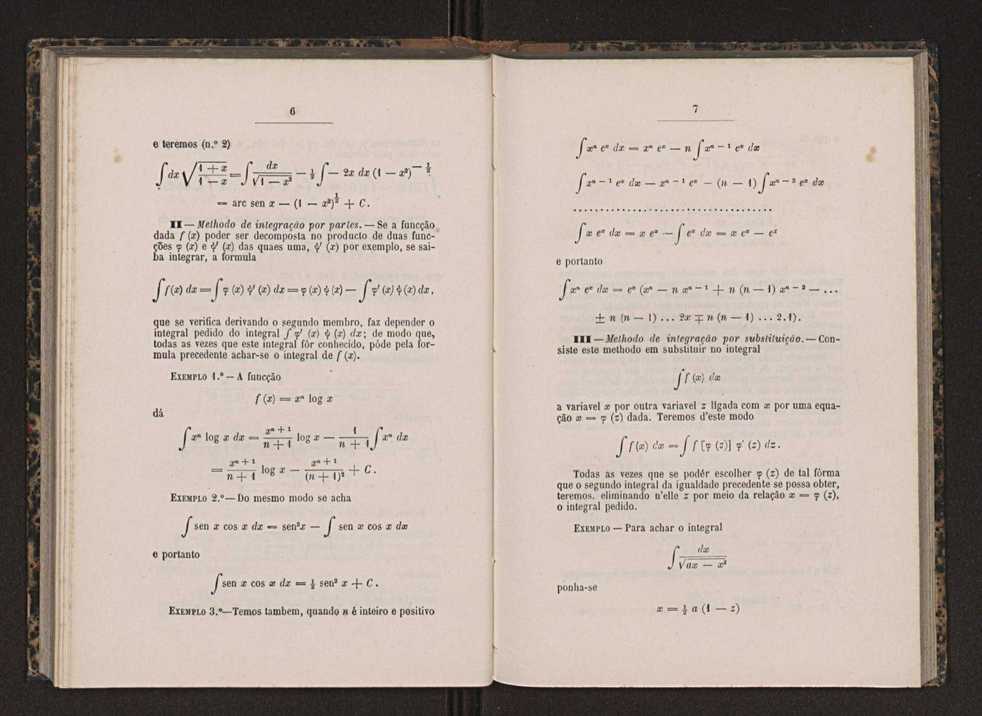 6
e teremos (n.º 2)
∫ dx √((1 + x)/(1 − x)) = ∫ dx/√(1 − x²) − ½ ∫ − 2x dx (1 − x²)^(−½)
= arc sen x — (1 — x²)^½ + C.
II — Methodo de integração por partes. — Se a funcção
dada f (x) poder ser decomposta no producto de duas func-
ções φ (x) e ψ′ (x) das quaes uma, ψ′ (x) por exemplo, se sai-
ba integrar, a formula
∫ f(x) dx = ∫ φ (x) ψ′ (x) dx = φ (x) ψ (x) — ∫ φ′ (x) ψ (x) dx,
que se verifica derivando o segundo membro, faz depender o
integral pedido do integral ∫ φ′ (x) ψ (x) dx; de modo que,
todas as vezes que este integral fôr conhecido, póde pela for-
mula precedente achar-se o integral de f (x).
EXEMPLO 1.º — A funcção
f (x) = xⁿ log x
dá
∫ xⁿ log x dx = xⁿ⁺¹/(n + 1) log x — 1/(n + 1) ∫ xⁿ dx
= xⁿ⁺¹/(n + 1) log x — xⁿ⁺¹/(n + 1)² + C.
EXEMPLO 2.º — Do mesmo modo se acha
∫ sen x cos x dx = sen²x — ∫ sen x cos x dx
e portanto
∫ sen x cos x dx = ½ sen² x + C.
EXEMPLO 3.º—Temos tambem, quando n é inteiro e positivo
7
∫ xⁿ eˣ dx = xⁿ eˣ — n ∫ xⁿ⁻¹ eˣ dx
∫ xⁿ⁻¹ eˣ dx — xⁿ⁻¹ eˣ — (n — 1) ∫ xⁿ⁻² eˣ dx
......................................
∫ x eˣ dx = x eˣ — ∫ eˣ dx = x eˣ — eˣ
e portanto
∫ xⁿ eˣ dx = eˣ (xⁿ — n xⁿ⁻¹ + n (n — 1) xⁿ⁻² — ...
± n (n — 1) ... 2x ∓ n (n — 1) ... 2.1).
III — Methodo de integração por substituição. — Con-
siste este methodo em substituir no integral
∫ f (x) dx
a variavel x por outra variavel z ligada com x por uma equa-
ção x = φ (z) dada. Teremos d'este modo
∫ f (x) dx = ∫ f [φ (z)] φ′ (z) dz.
Todas as vezes que se podér escolher φ (z) de tal fórma
que o segundo integral da igualdade precedente se possa obter,
teremos, eliminando n'elle z por meio da relação x = φ (z),
o integral pedido.
EXEMPLO — Para achar o integral
∫ dx/√(ax — x²)
ponha-se
x = ½ a (1 — z)